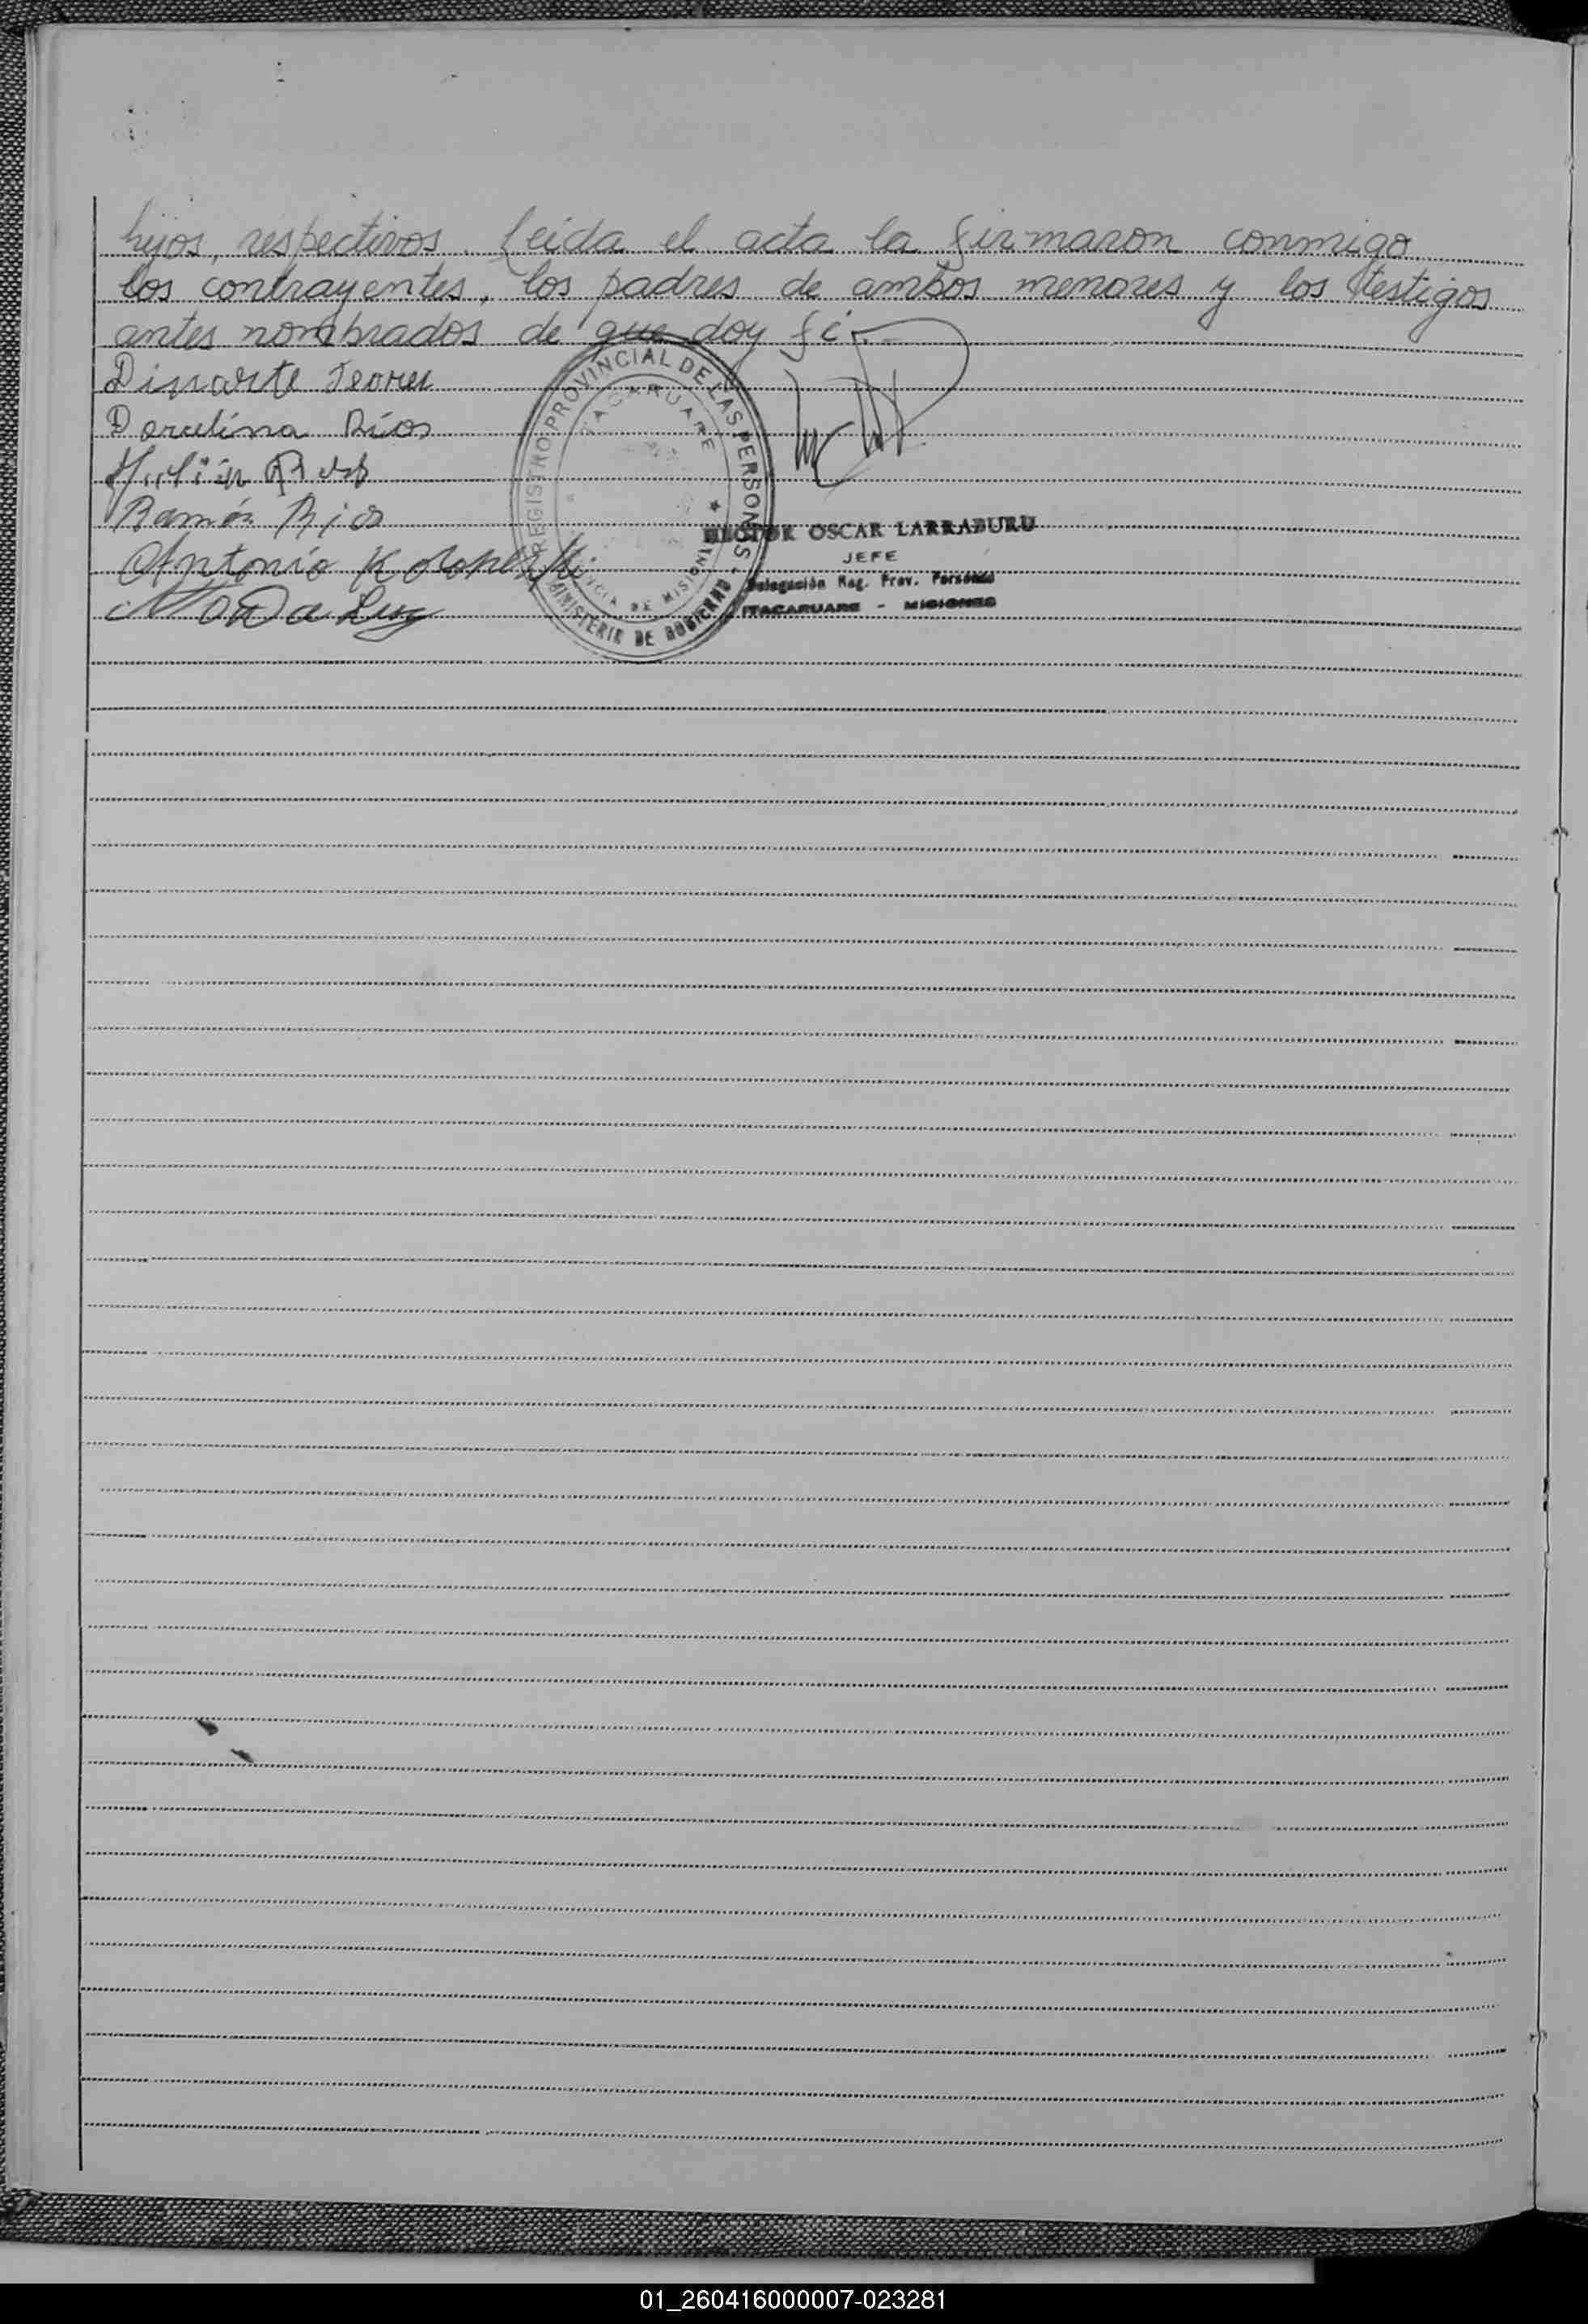 hijos, respectivos. Leida el acta la firmaron conmigo
los contrayentes, los padres de ambos menores y los testigos
antes nombrados de que doy fé.-
Dinarte
Dorcelina Ríos
Ramón Rios
Antonio
Da Luz
REGISTRO PROVINCIAL DE LAS PERSONAS
ITACARUARE
PROVINCIA DE MISIONES
MINISTERIO DE GOBIERNO
HECTOR OSCAR LARRABURU
JEFE
Delegación Reg. Prov. Personas
ITACARUARE - MISIONES
01_260416000007-023281